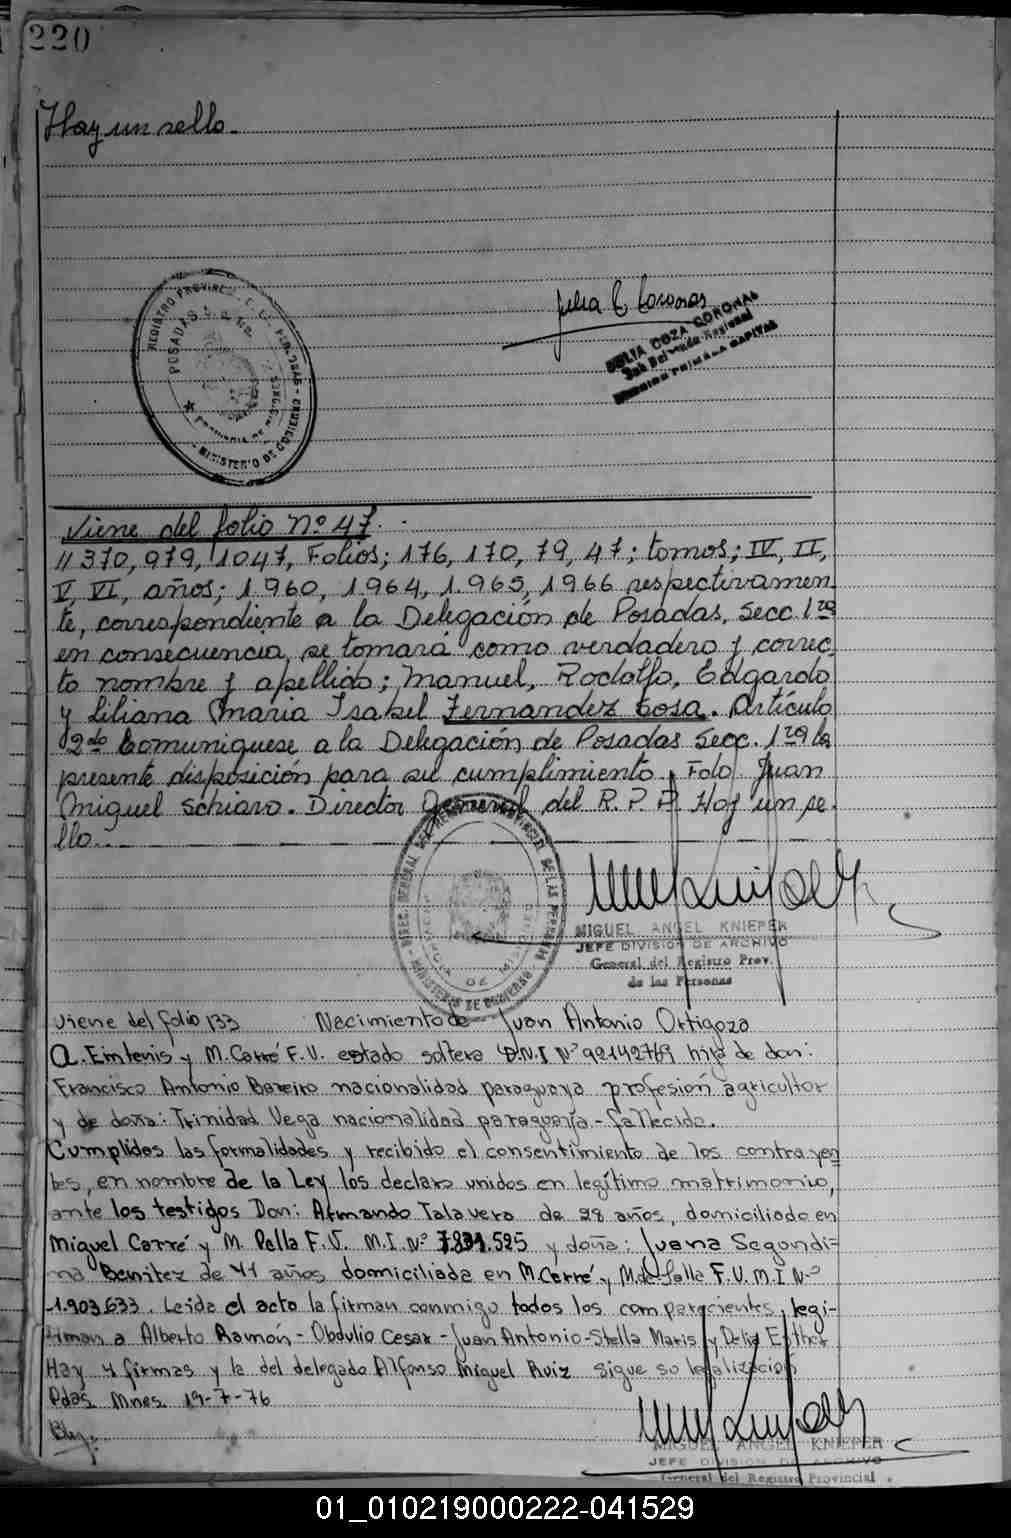 220
Hay un sello.
REGISTRO PROVINCIAL
POSADAS
MINISTERIO DE GOBIERNO
Julia C. Coronas
JULIA COZA CORONAL
viene del folio Nº 47.
11 370, 979, 1047, Folios; 176, 170, 79, 47; tomos; IV, II,
V, VI, años; 1.960, 1.964, 1.965, 1966 respectivamen-
te, correspondiente a la Delegación de Posadas, Secc. 1ra
en consecuencia, se tomará como verdadero y correc-
to nombre y apellido; Manuel, Rodolfo, Edgardo
y Liliana Maria Isabel Fernandez Cosa. Artículo
2do Comuniquese a la Delegación de Posadas Secc. 1ra la
presente disposición para su cumplimiento. Fdo. Juan
Miguel Schiavo. Director General del R.P.P. Hay un se-
llo.
DIREC. GENERAL DEL REGISTRO PROVINCIAL DE LAS PERSONAS
PROVINCIA DE MISIONES
MINISTERIO DE GOBIERNO
MIGUEL ANGEL KNIEPER
JEFE DIVISION DE ARCHIVO
General del Registro Prov.
de las Personas
viene del folio 133 Nacimiento de Juan Antonio Ortigoza
A. Emtenis y M. Carré F.U. estado soltera D.N.I Nº 92142769 hija de don:
Francisco Antonio Bareiro nacionalidad paraguaya profesión agricultor
y de doña: Trinidad Vega nacionalidad paraguaya - fallecida.
Cumplidas las formalidades y recibido el consentimiento de los contrayen
tes, en nombre de la Ley los declaro unidos en legítimo matrimonio,
ante los testigos Don: Armando Talavera de 28 años, domiciliado en
Miguel Carré y M. Della F.U. M.I.Nº 7.831.525 y doña: Juana Segundi=
na Benitez de 41 años domiciliada en M. Carré y M. de Salle F.U. M.I.Nº
1.903.633. Leida el acto la firman conmigo todos los comparecientes, legi-
timan a Alberto Ramón - Obdulio Cesar - Juan Antonio - Stella Maris y Delia Esther
Hay 4 firmas y la del delegado Alfonso Miguel Ruiz sigue su legalización
Pdas. Mnes. 19-7-76
MIGUEL ANGEL KNIEPER
JEFE DIVISION DE ARCHIVO
General del Registro Provincial
01_010219000222-041529